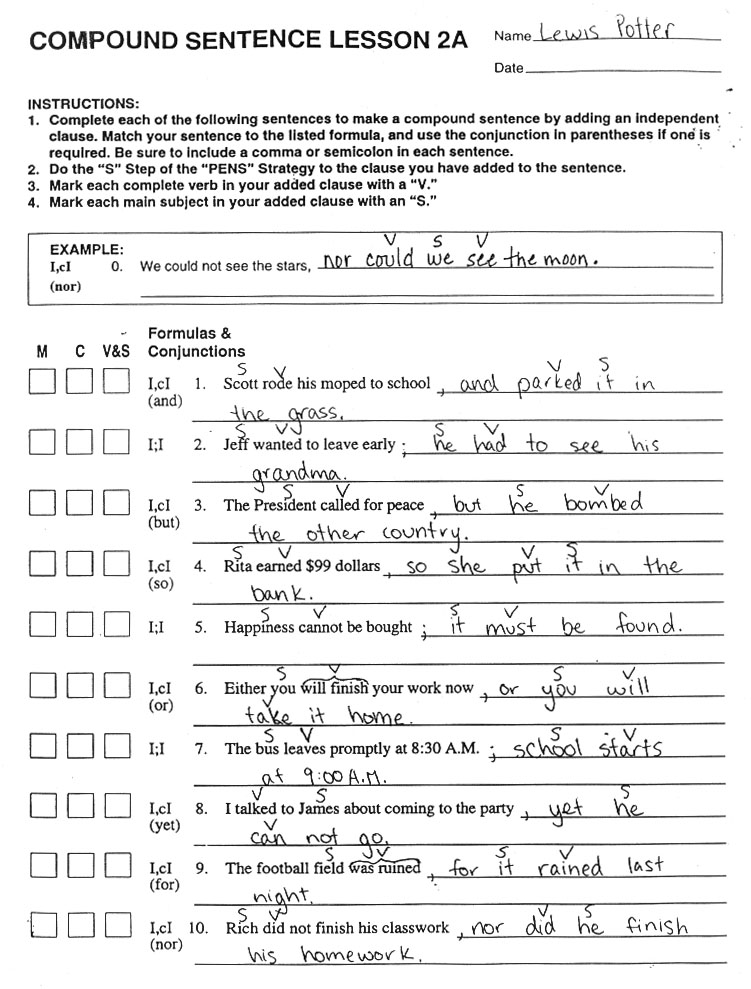 COMPOUND SENTENCE LESSON 2A
Name Lewis Potter
Date
INSTRUCTIONS:
1. Complete each of the following sentences to make a compound sentence by adding an independent
clause. Match your sentence to the listed formula, and use the conjunction in parentheses if one is
required. Be sure to include a comma or semicolon in each sentence.
2. Do the “S” Step of the “PENS” Strategy to the clause you have added to the sentence.
3. Mark each complete verb in your added clause with a “V.”
4. Mark each main subject in your added clause with an “S.”
EXAMPLE:
V S V
I,cI 0. We could not see the stars, nor could we see the moon.
(nor)
Formulas &
M C V&S Conjunctions
S V V S
I,cI 1. Scott rode his moped to school , and parked it in
(and)
the grass.
S V S V
I;I 2. Jeff wanted to leave early ; he had to see his
grandma.
S V S V
I,cI 3. The President called for peace , but he bombed
(but)
the other country.
S V V S
I,cI 4. Rita earned $99 dollars , so she put it in the
(so)
bank.
S V S V
I;I 5. Happiness cannot be bought ; it must be found.
S V S V
I,cI 6. Either you will finish your work now , or you will
(or)
V
take it home.
S V S V
I;I 7. The bus leaves promptly at 8:30 A.M. ; school starts
at 9:00 A.M.
V S S
I,cI 8. I talked to James about coming to the party , yet he
(yet)
V
can not go.
S V S V
I,cI 9. The football field was ruined , for it rained last
(for)
night.
S V V S
I,cI 10. Rich did not finish his classwork , nor did he finish
(nor)
his homework.